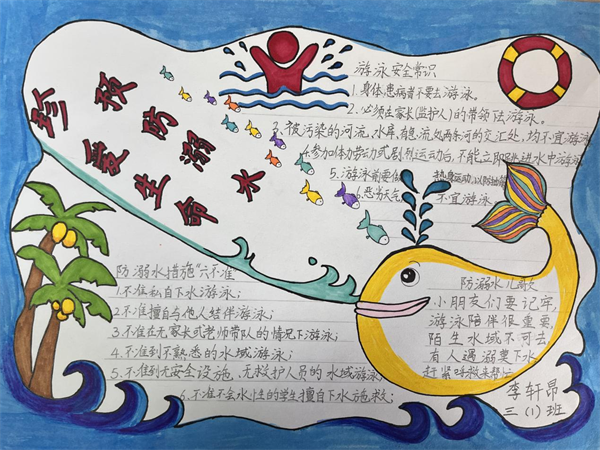 珍爱生命
预防溺水
游泳安全常识
1.身体患病者不要去游泳。
2.必须在家长(监护人)的带领下去游泳。
3.被污染的河流,水库,有急流处,两条河的交汇处,均不宜游泳
4.参加体力劳动或剧烈运动后,不能立即跳进水中游泳
5.游泳前要做 热身运动,以防抽筋
6.恶劣天气 不宜游泳
防溺水措施"六不准"
1.不准私自下水游泳;
2.不准擅自与他人结伴游泳;
3.不准在无家长或老师带队的情况下游泳;
4.不准到不熟悉的水域游泳;
5.不准到无安全设施,无救护人员的水域游泳;
6.不准不会水性的学生擅自下水施救;
防溺水儿歌
小朋友们要记牢,
游泳陪伴很重要,
陌生水域不可去
有人遇溺要下水
赶紧呼救来帮忙
李轩昂
三(1)班